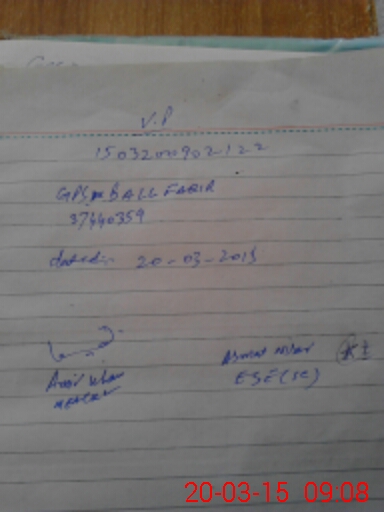 V.P
1503200902122
GPS M BALL FAQIR
37440359
dated:- 20-03-2015
Amir khan
Asmat nisar
ESE (SC)
20-03-15 09:08